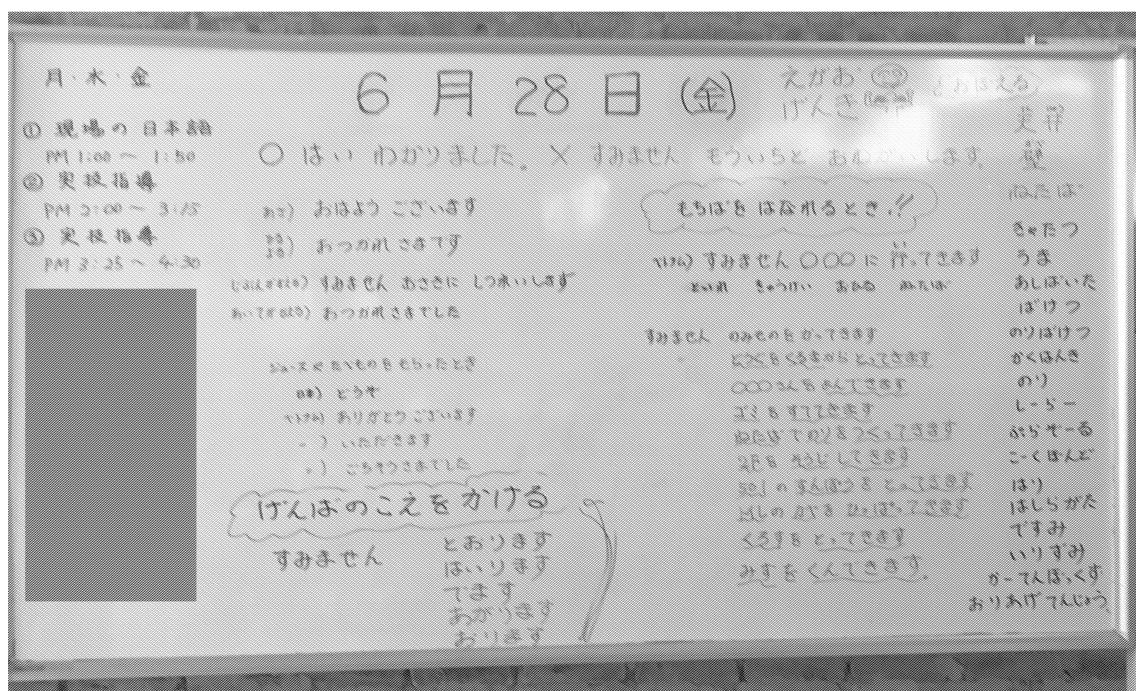 月・水・金
① 現場の日本語
PM 1:00〜1:50
② 実技指導
PM 2:00〜3:15
③ 実技指導
PM 3:25〜4:30
6月28日(金)
えがお
げんき
とおぼえる
○ はい わかりました。 × すみません もういちど おねがいします。
あさ) おはよう ございます
おつかれさまです
すみません おさきに しつれいします
おつかれさまでした
ジュースや たべものを もらったとき
日本) どうぞ
ベトナム) ありがとうございます
〃 ) いただきます
〃 ) ごちそうさまでした
げんばのこえを かける
すみません
とおります
はいります
でます
あがります
おります
もちばを はなれるとき!!
ベトナム) すみません ○○○に 行ってきます
といれ きゅうけい おひる ねたば
すみません のみものを かってきます
どうぐを くるまから とってきます
○○○さんを よんできます
ゴミを すててきます
ねたばで のりを つくってきます
そうじしてきます
すんぽうを とってきます
くろすを とってきます
みずを くんできます。
壁
ねたば
きゃたつ
うま
あしばいた
ばけつ
のりばけつ
かくはんき
のり
しーらー
ぷらぞーる
こーくぼんど
はり
はしらがた
ですみ
いりずみ
かーてんぼっくす
おりあげてんじょう